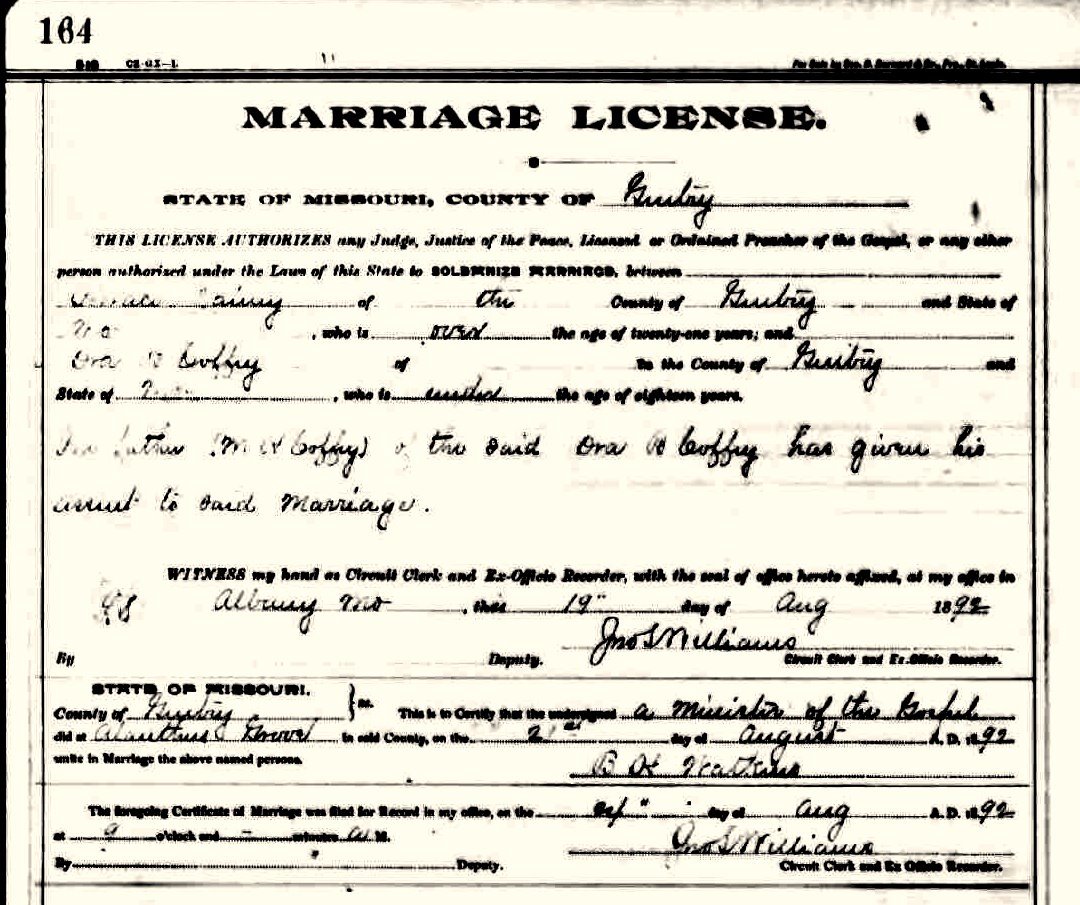 164
MARRIAGE LICENSE.
STATE OF MISSOURI, COUNTY OF Gentry
THIS LICENSE AUTHORIZES any Judge, Justice of the Peace, Licensed or Ordained Preacher of the Gospel, or any other
person authorized under the Laws of this State to SOLEMNIZE MARRIAGE, between
of the County of Gentry and State of
Mo, who is over the age of twenty-one years; and
Ora B Coffey of in the County of Gentry and
State of Mo, who is under the age of eighteen years.
father (M H Coffey) of the said Ora B Coffey has given his
assent to said Marriage.
WITNESS my hand as Circuit Clerk and Ex-Officio Recorder, with the seal of office hereto affixed, at my office in
Albany Mo, this 19" day of Aug 1892
Jno S Williams
By Deputy. Circuit Clerk and Ex-Officio Recorder.
STATE OF MISSOURI.
County of Gentry } ss. This is to Certify that the undersigned a Minister of the Gospel
did at Alanthus Grove in said County, on the 21st day of August A. D. 1892
unite in Marriage the above named persons.
B H Watkins
The foregoing Certificate of Marriage was filed for Record in my office, on the day of Aug A. D. 1892
at 9 o'clock and - minutes a M. Jno S Williams
By Deputy. Circuit Clerk and Ex Officio Recorder.